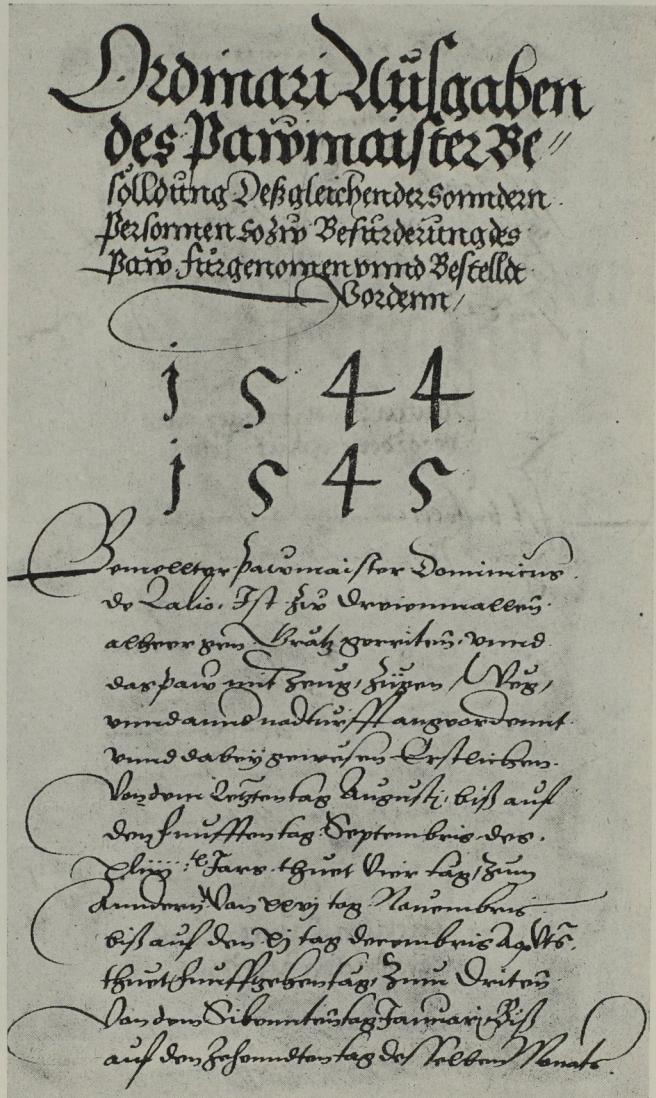 Ordinari Ausgaben
des Pawmaister Be〃
solldung Deßgleichen der Sonndern
Personnen so zw Befürderung des
Paw fürgenomen vnnd Bestelldt
Wordenn /
1544
1545
Gemellter Pawmaister Dominicus
de Lalio. Ist zw dreienmallen
alheer gen Grätz geritten, vnnd
das Paw mit Zeug, Zügen / Weg,
vnnd annd nodturfft angeordennt
vnnd dabey gewesen Erstlichen
Von dem Letzten tag Augusti, biß auf
den funfften tag Septembris des
xliiij Jars thuet Vier tag, Zum
Anndern Von xxvj tag Nouembris
biß auf den xj tag decembris
thuet funffzehen tag, Zum Driten
Von dem Sibennten tag Januarj Biß
auf den Zehenndten tag desselben Monats